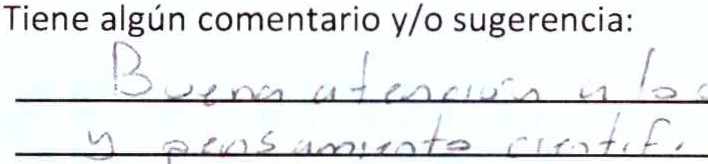 Tiene algún comentario y/o sugerencia:
Buena atención a los
y pensamiento cientif.